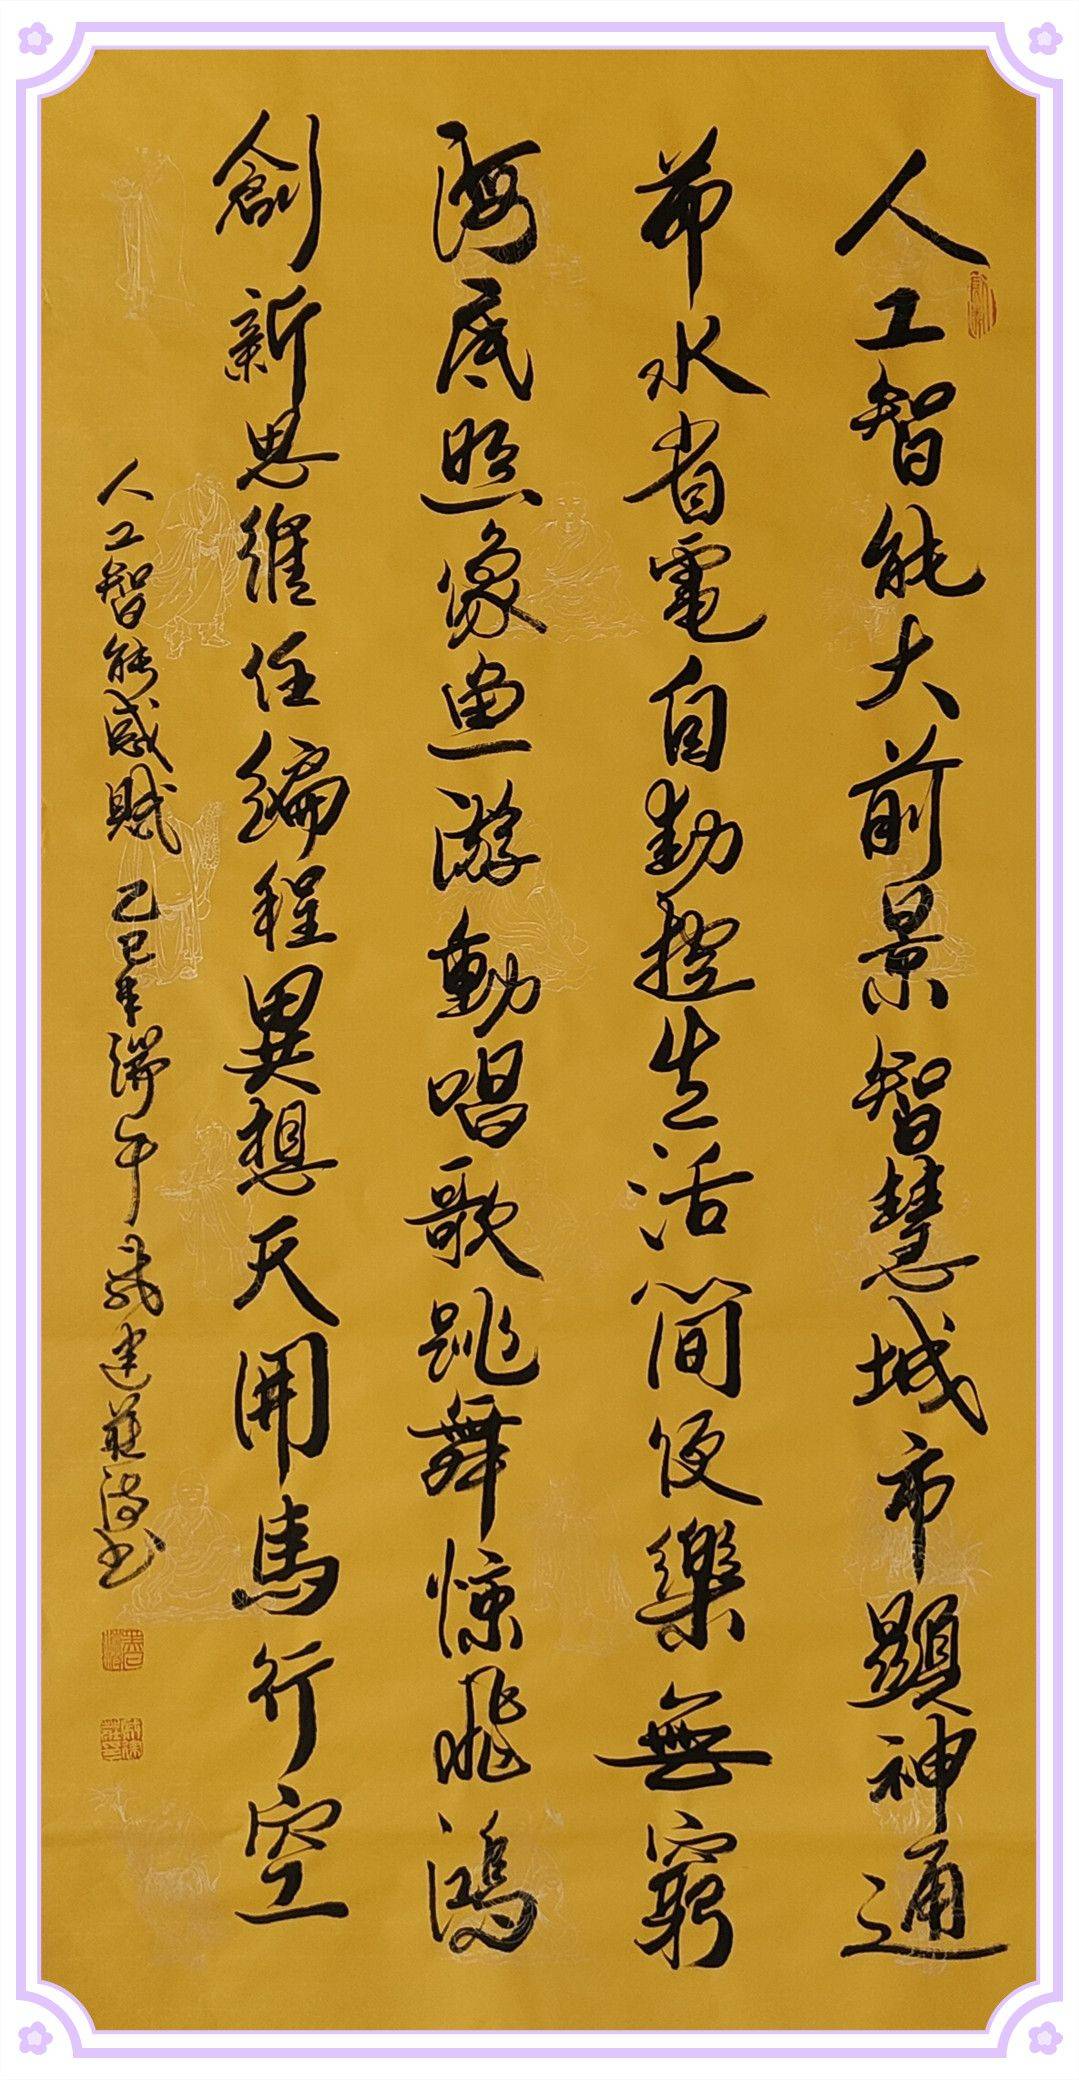 人工智能大前景智慧城市顯神通
節水省電自動控生活簡便樂無窮
海底照象魚游動唱歌跳舞惊飛鴻
創新思維任編程異想天開馬行空
人工智能感賦 乙巳年端午 建莊詩书